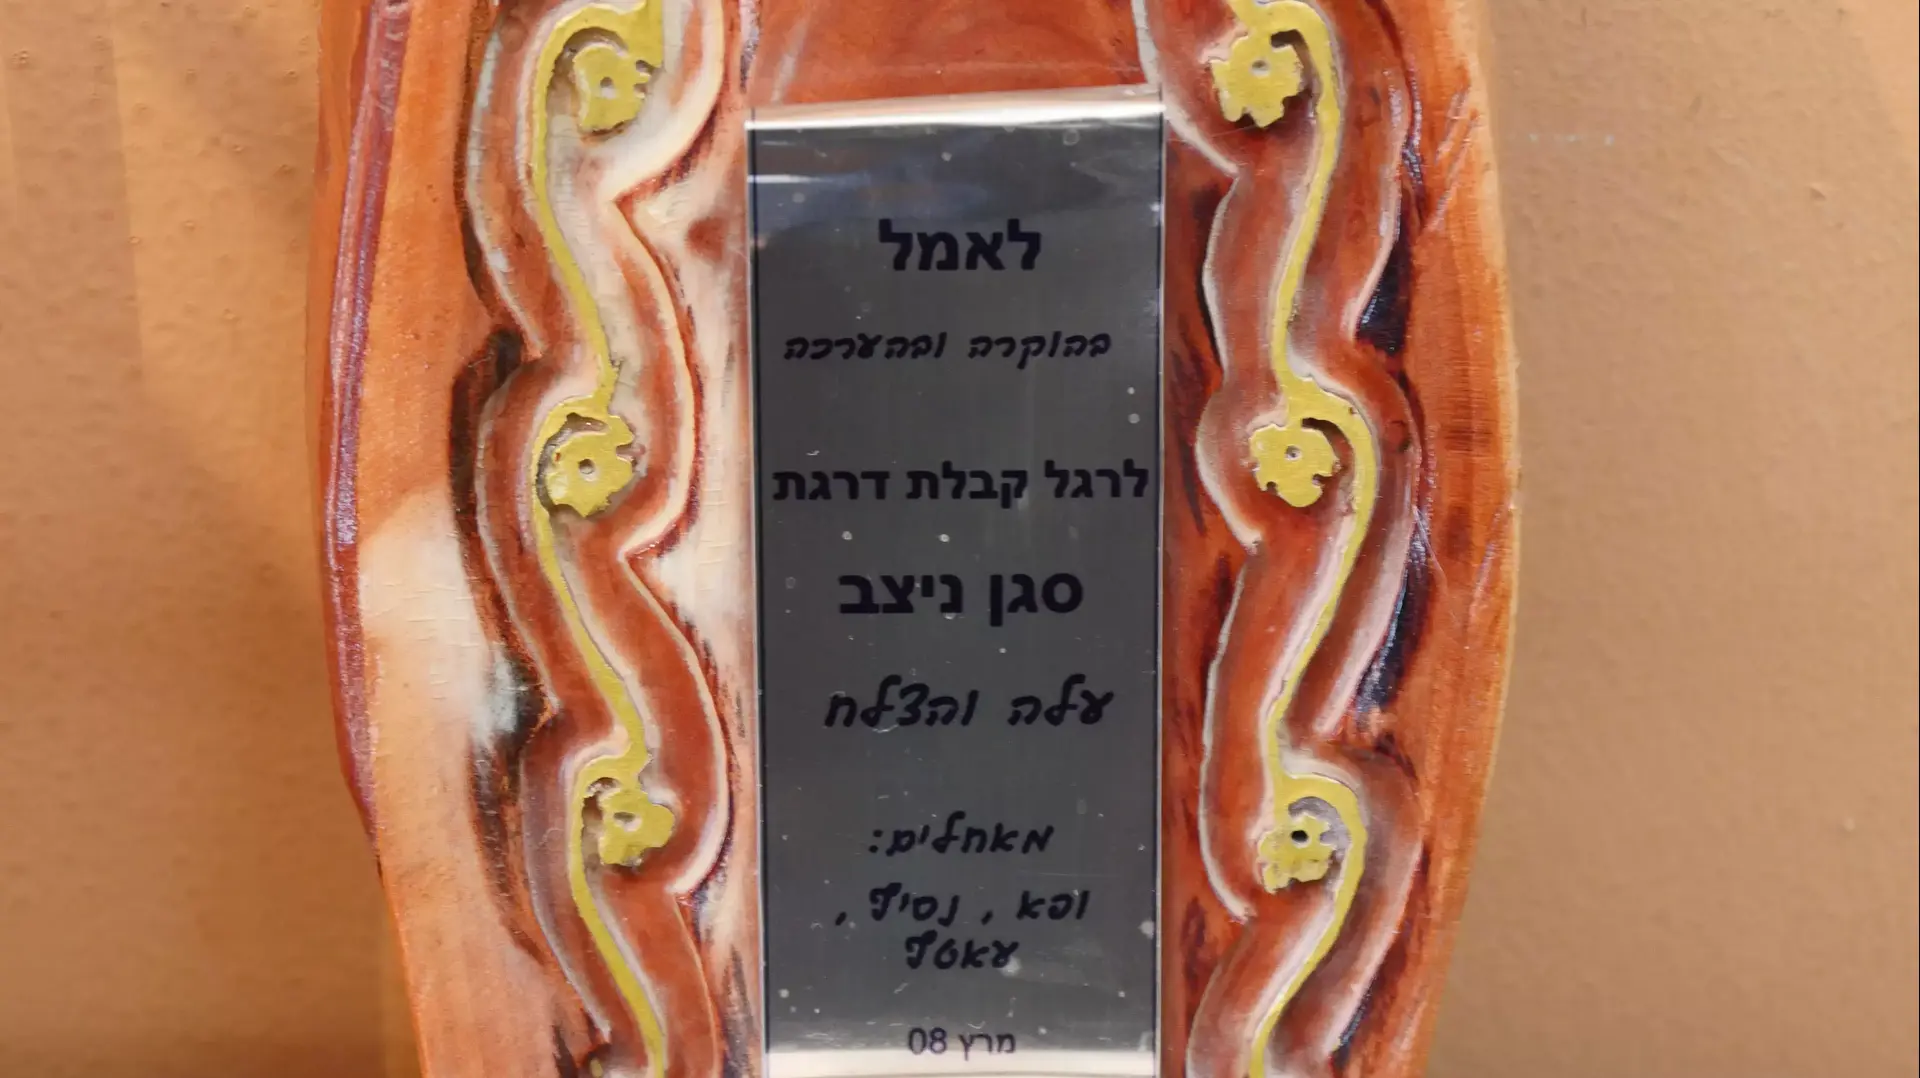 לאמל
בהוקרה ובהערכה
לרגל קבלת דרגת
סגן ניצב
עלה והצלח
מאחלים:
ופא, נסיף,
עאטף
מרץ 08